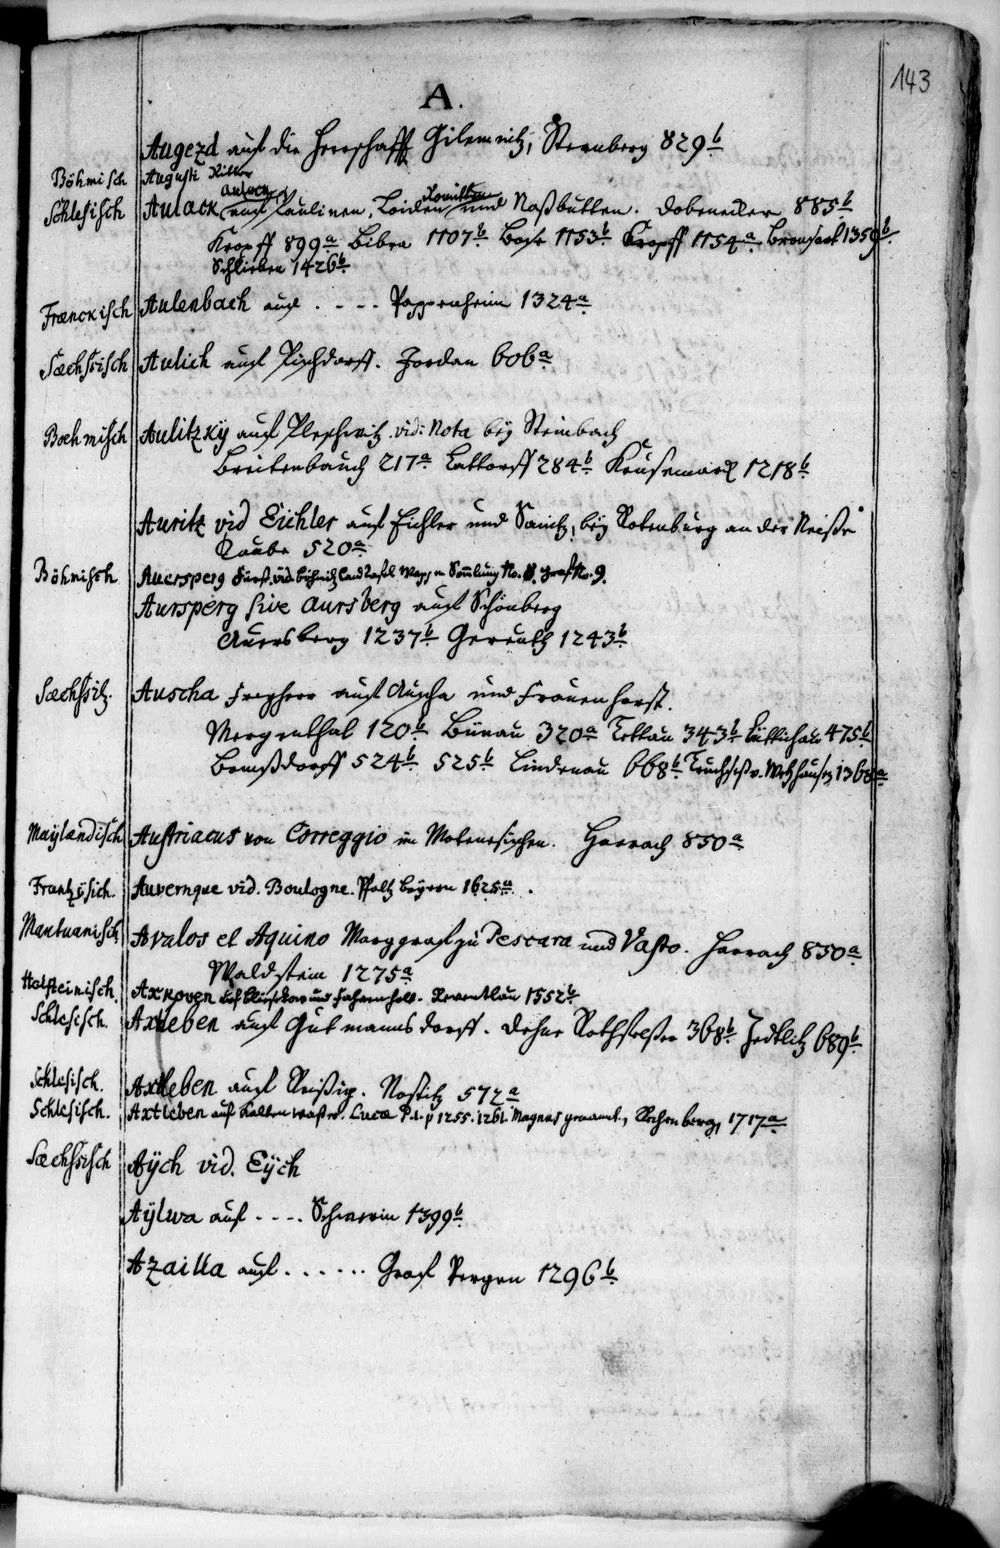 143
A.
Augezd auf die Herrschafft Gilemnitz, Sternberg 829b
Böhmisch Augusti Ritter
Aulock
Schlesisch Aulack auf Paulinen, Loiden und Naßbutten. Dobeneker 885b
Kropff 899a Bibra 1107b Bose 1153b Kropff 1154a Bronsart 1359b
Schlieben 1426b
Frænckisch Aulenbach auf . - - . Pappenheim 1324a
Sæchsisch Aulich auf Pischdorff. Jordan 606a
Boehmisch Aulitzky auf Pleschwitz. vid: Nota beÿ Steinbach
Breitenbauch 217a Lattorff 284b Krusemarck 1218b
Auritz vid Eichler auf Eichler und Sanitz, beÿ Rotenburg an der Neiße
Raube 520a
Böhmisch Auersperg Fürst. vid. böhmisch Land Tafel Wappen Samlung No. 8. Graf No. 9.
Aursperg sive Aursberg auf Schönberg
Auersberg 1237b Gereuth 1243b
Sæchsisch. Auscha Freyherr auf Auscha und Frauenhorst.
Mergenthal 120b Bünau 320a Tettau 343b Lüttichau 475b
Bomßdorff 524b 525b Lindenau 668b Truchses v. Wetzhausen 1368a
Maylændisch Austriacus von Correggio im Modenesischen. Harrach 850a
Frantzösisch. Auvernque vid. Boulogne. Pfaltz Beyern 1625a.
Mantuanisch Avalos et Aquino Marggraf zu Pescara und Vasto. Harrach 850a
Waldstein 1275a
Holsteinisch. Axkoven und Fahrenholz. Reventlau 1552b
Schlesisch. Axleben auf Gutmannsdorff. Dehna Rothfelser 368b Zedlitz 689b
Schlesisch. Axleben auf Reißig. Nostitz 572a
Schlesisch. Axtleben auf Kaltenwasser. Lucæ P. 1. p 1255. 1261. Magnus genannt, Rechenberg 1717a
Sæchsisch Aÿch vid. Eÿch
Aÿlwa auf . - - . Schwerin 1399b
Azailla auf . . . . . . Graf Pergen 1296b